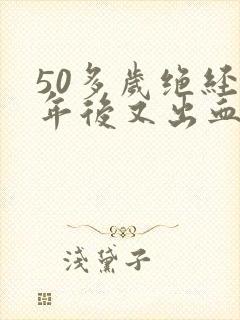 50多歲绝経
年後又出血
淺黛子